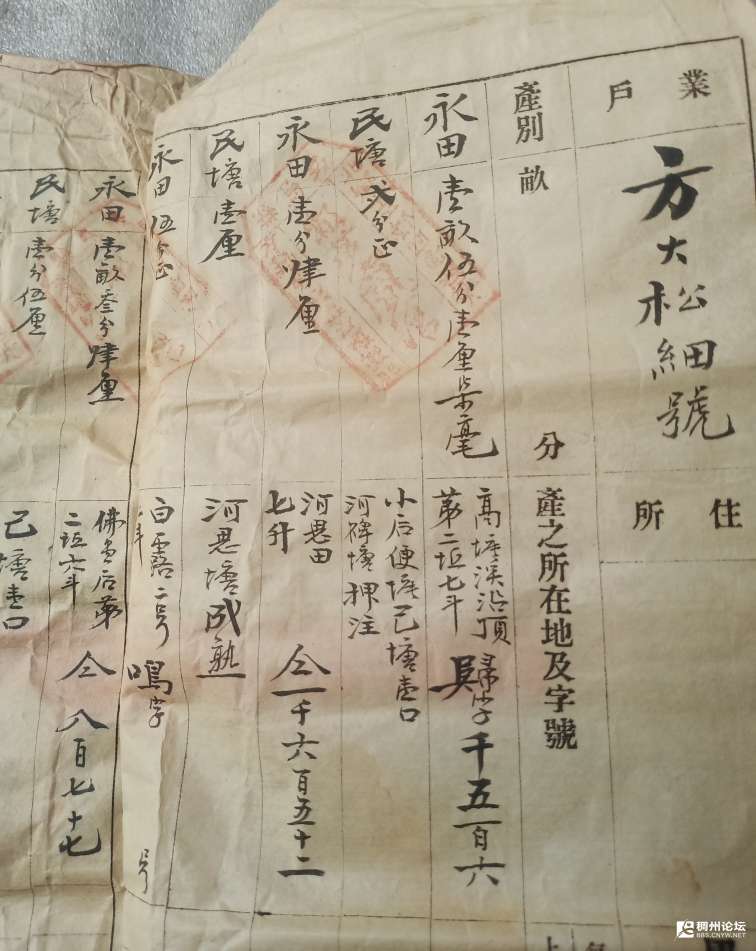 業戶
方大松細號
住所
產別
畝
分
產之所在地及字號
永田 壹畝伍分壹厘柒毫
高塘溪沿頂
第二坵七斗
歸字
千五百六
民塘 弍分正
小后便塘己塘壹口
河碑塘押注
永田 壹分肆厘
河思田
七升
仝 一千六百五十二
民塘 壹厘
河思塘成熟
永田 伍分正
白露二号 鳴字
号
永田 壹畝叁分肆厘
佛堂后第
二坵六斗
仝 八百七十七
民塘 壹分伍厘
己塘壹口
稠州论坛
BBS.CNYW.NET